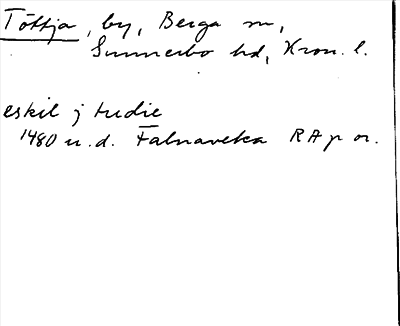 Töttja, by, Berga sn,
Sunnerbo hd, Kron. l.
eskil j tudie
1480 u.d. Falnaveka RAp or.